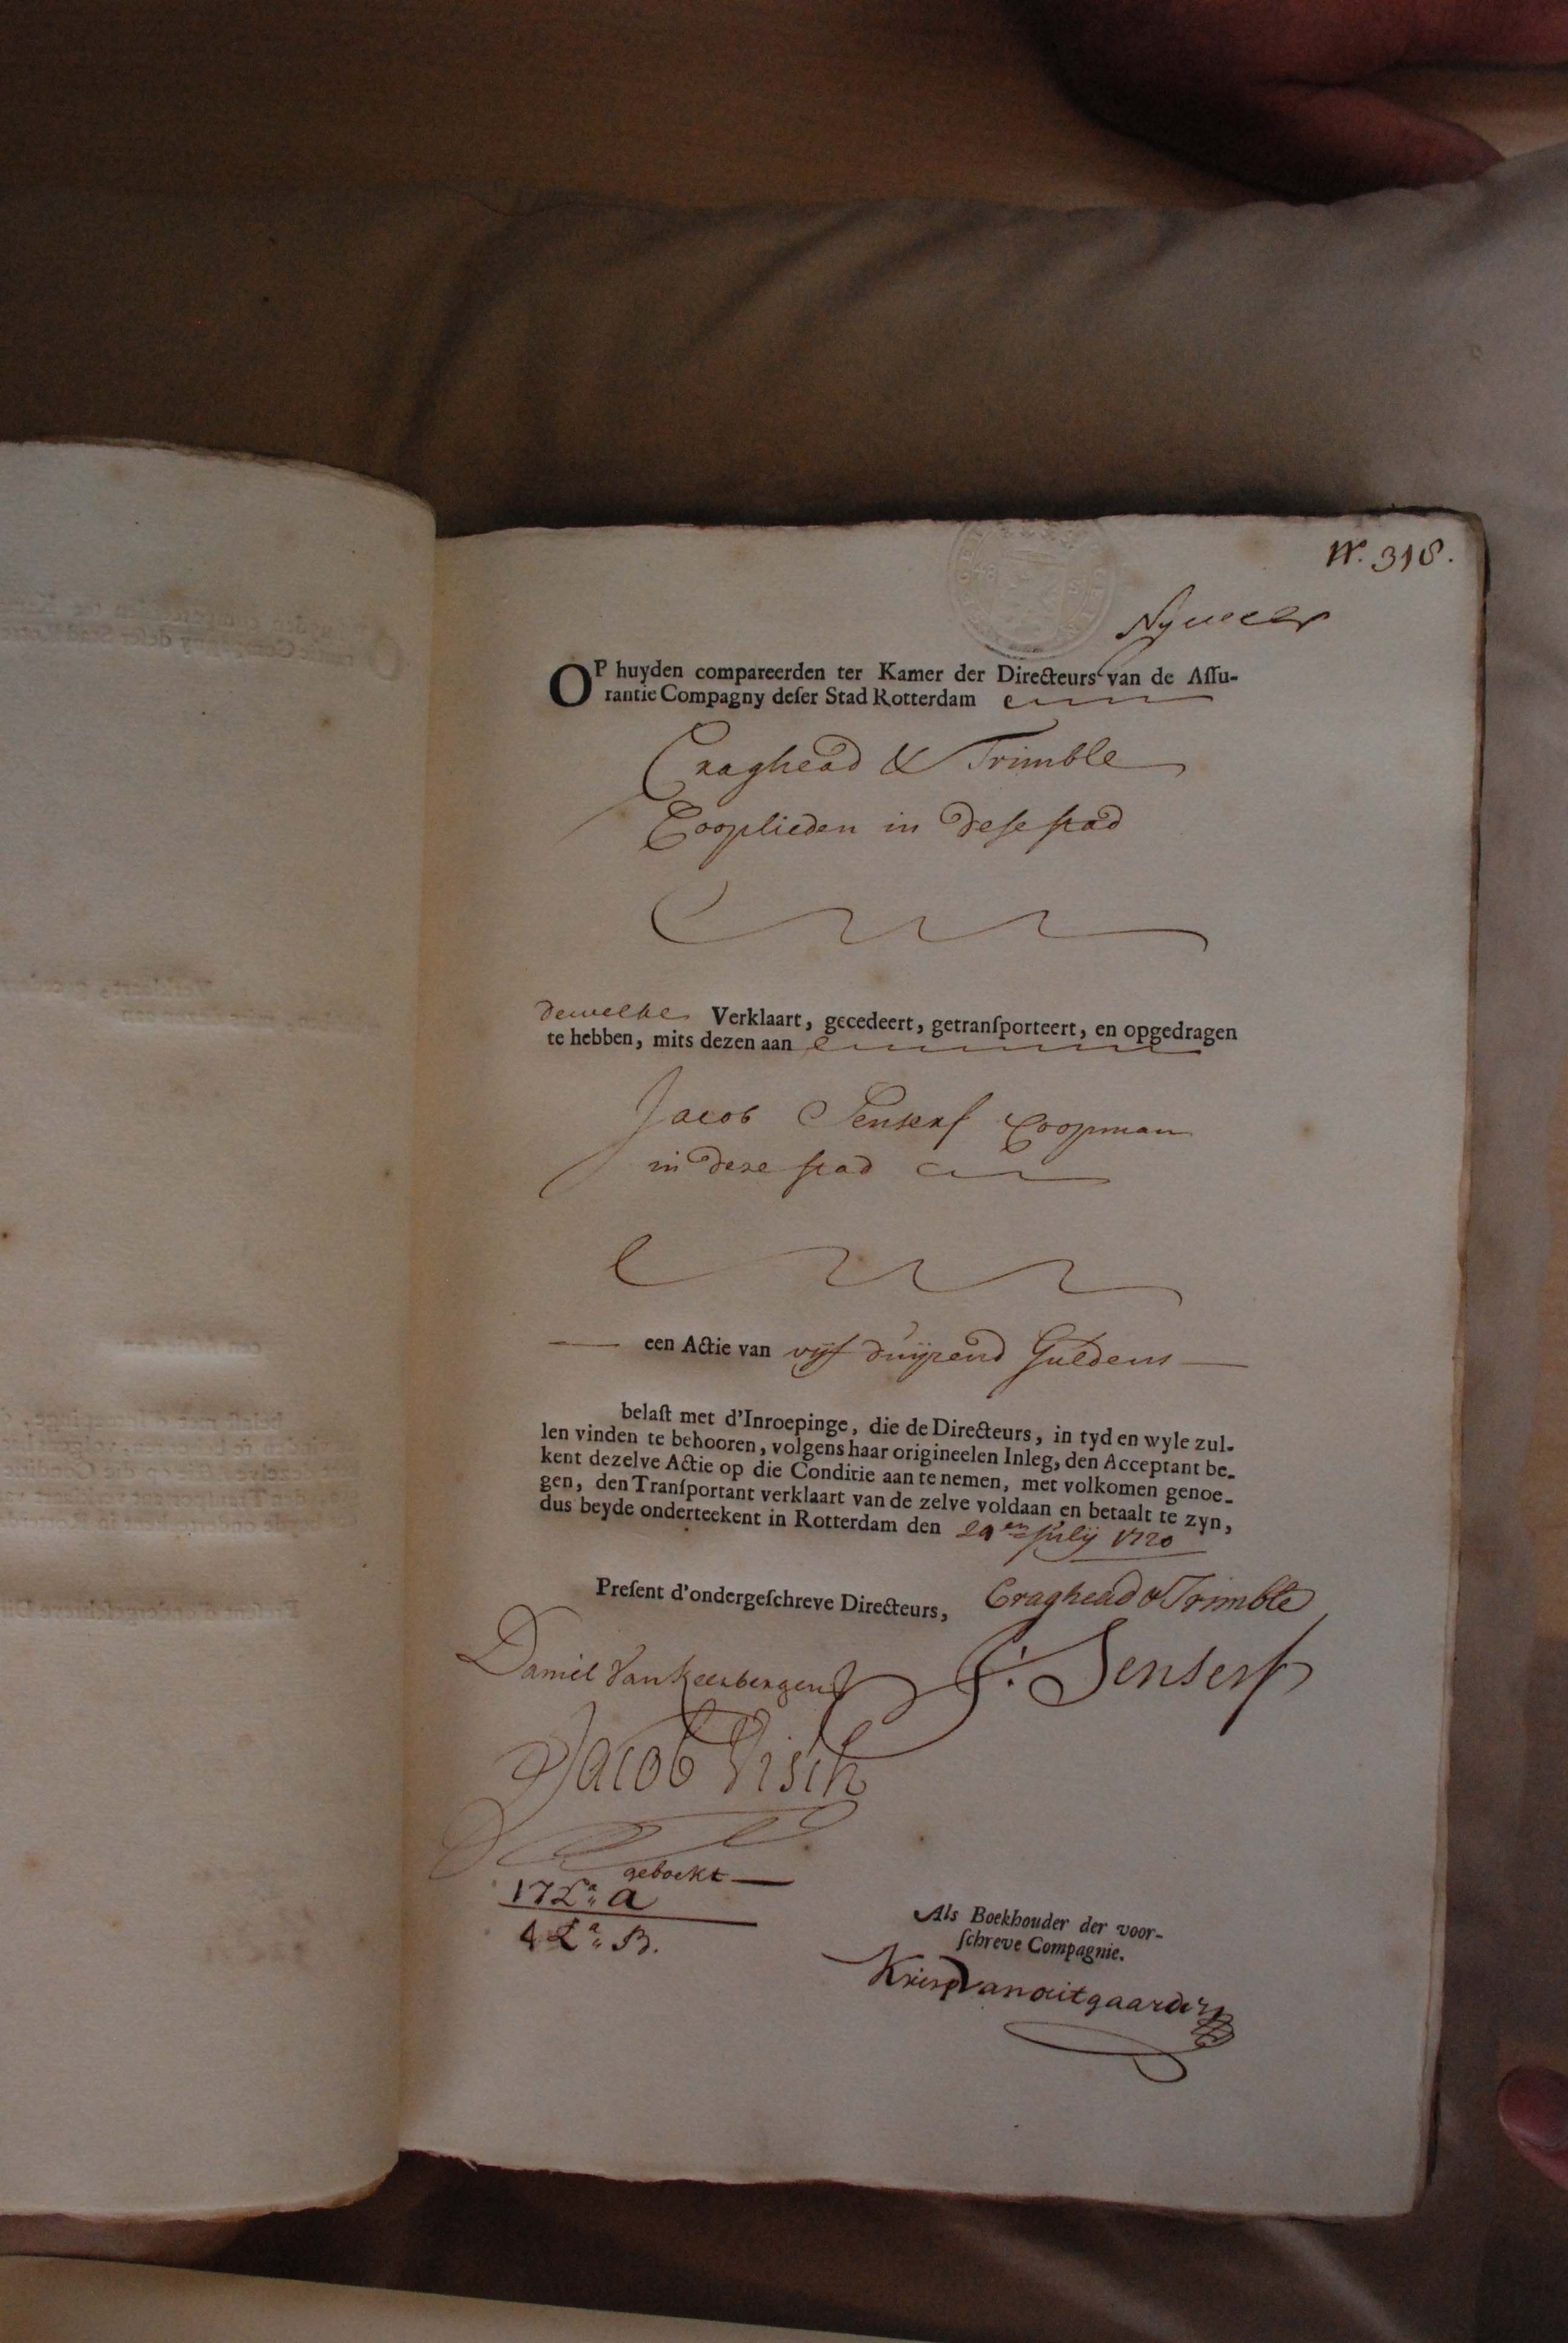 N.° 318.
OP huyden compareerden ter Kamer der Directeurs van de Aſſu-
rantie Compagny deſer Stad Rotterdam
Craghead & Trimble
Cooplieden in deſe ſtad
dewelke Verklaart, gecedeert, getranſporteert, en opgedragen
te hebben, mits dezen aan
Jacob Senserf Coopman
in deze ſtad
een Actie van vijf duijzend Guldens
belaſt met d'Inroepinge, die de Directeurs, in tyd en wyle zul-
len vinden te behooren, volgens haar origineelen Inleg, den Acceptant be-
kent dezelve Actie op die Conditie aan te nemen, met volkomen genoe-
gen, den Tranſportant verklaart van de zelve voldaan en betaalt te zyn,
dus beyde onderteekent in Rotterdam den 29en Julij 1720
Preſent d'ondergeſchreve Directeurs,
Craghead & Trimble
Daniel Van Keerbergen
J: Senserf
Jacob Visch
geboekt
17 La: a
4 La: B.
Als Boekhouder der voor-
ſchreve Compagnie.